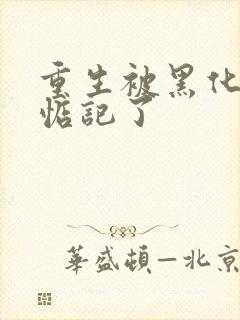 重生被黑化
惦記了
華盛頓—北京